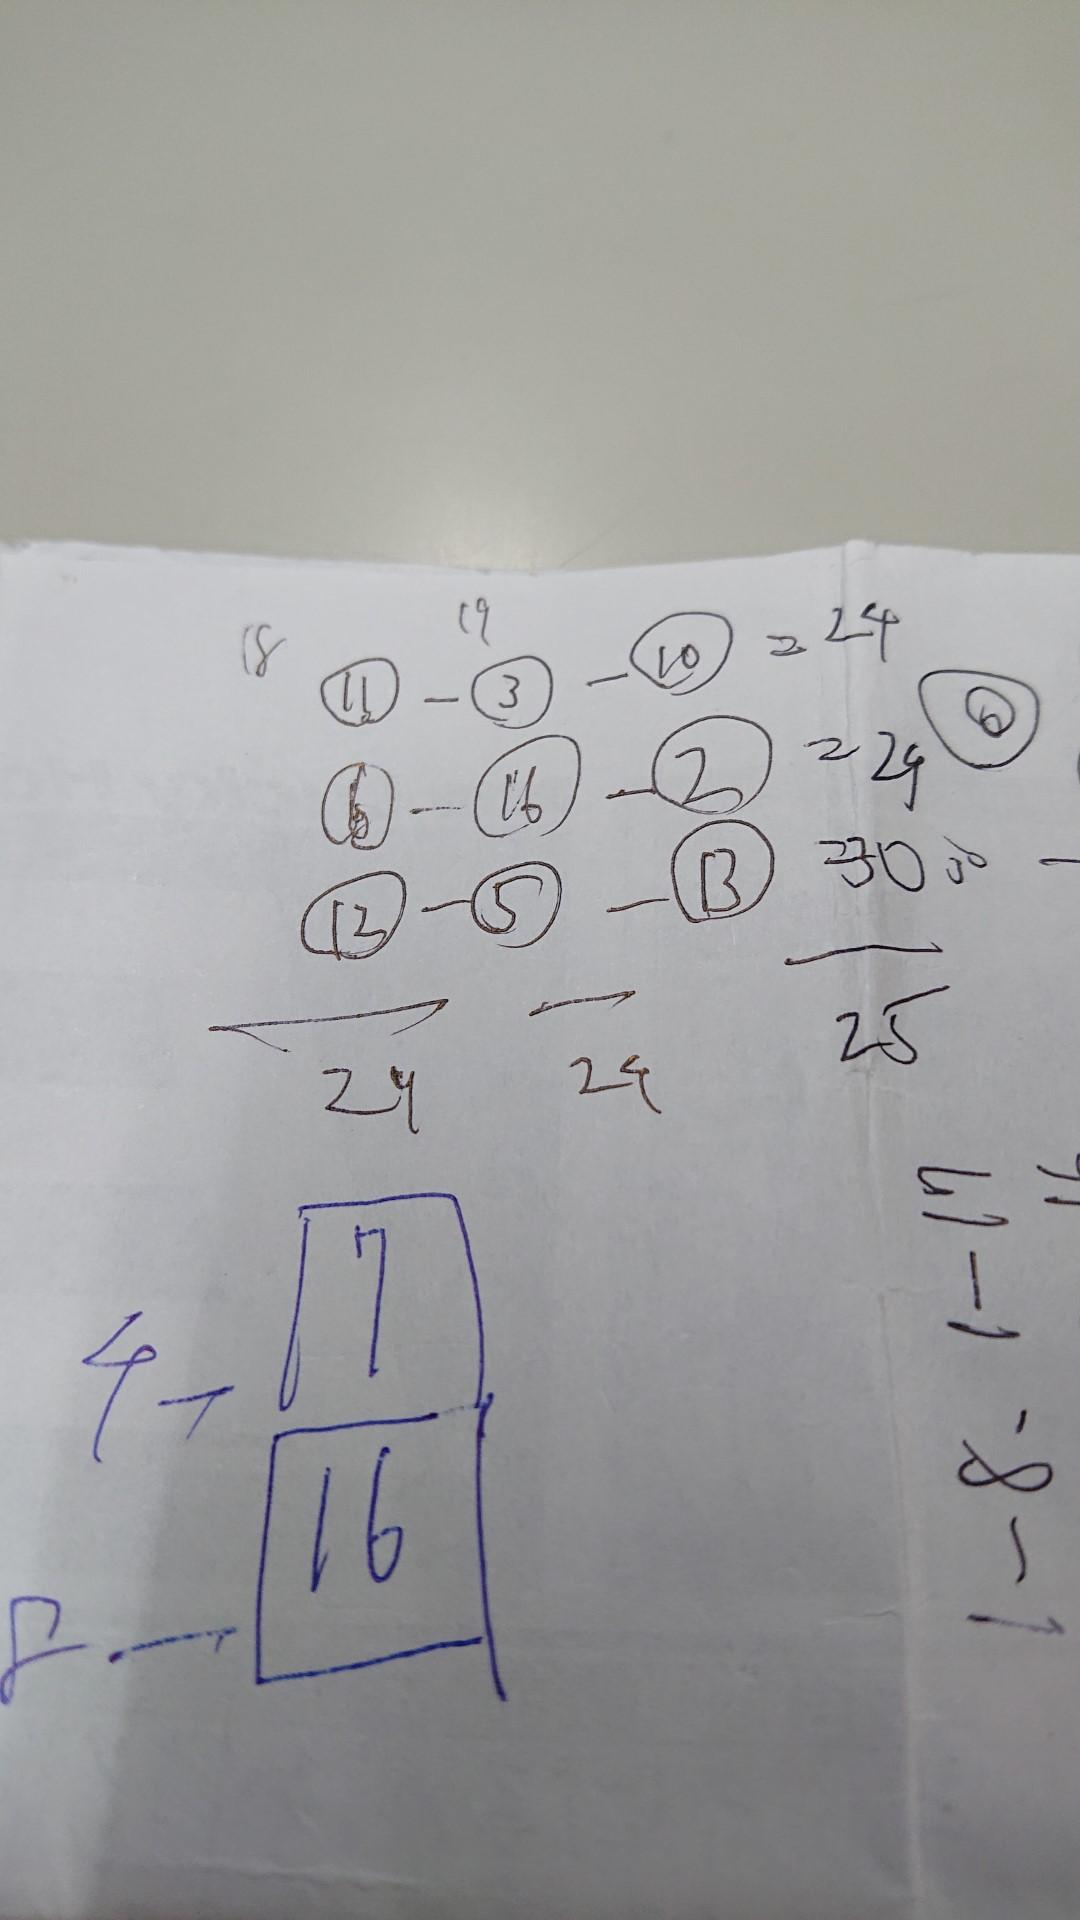 18 19
11 - 3 - 10 = 24
6 - 16 - 2 = 24 6
12 - 5 - 13 = 30
24 24 25
7
4 -
16
8 -
17 - 1
8 - 1